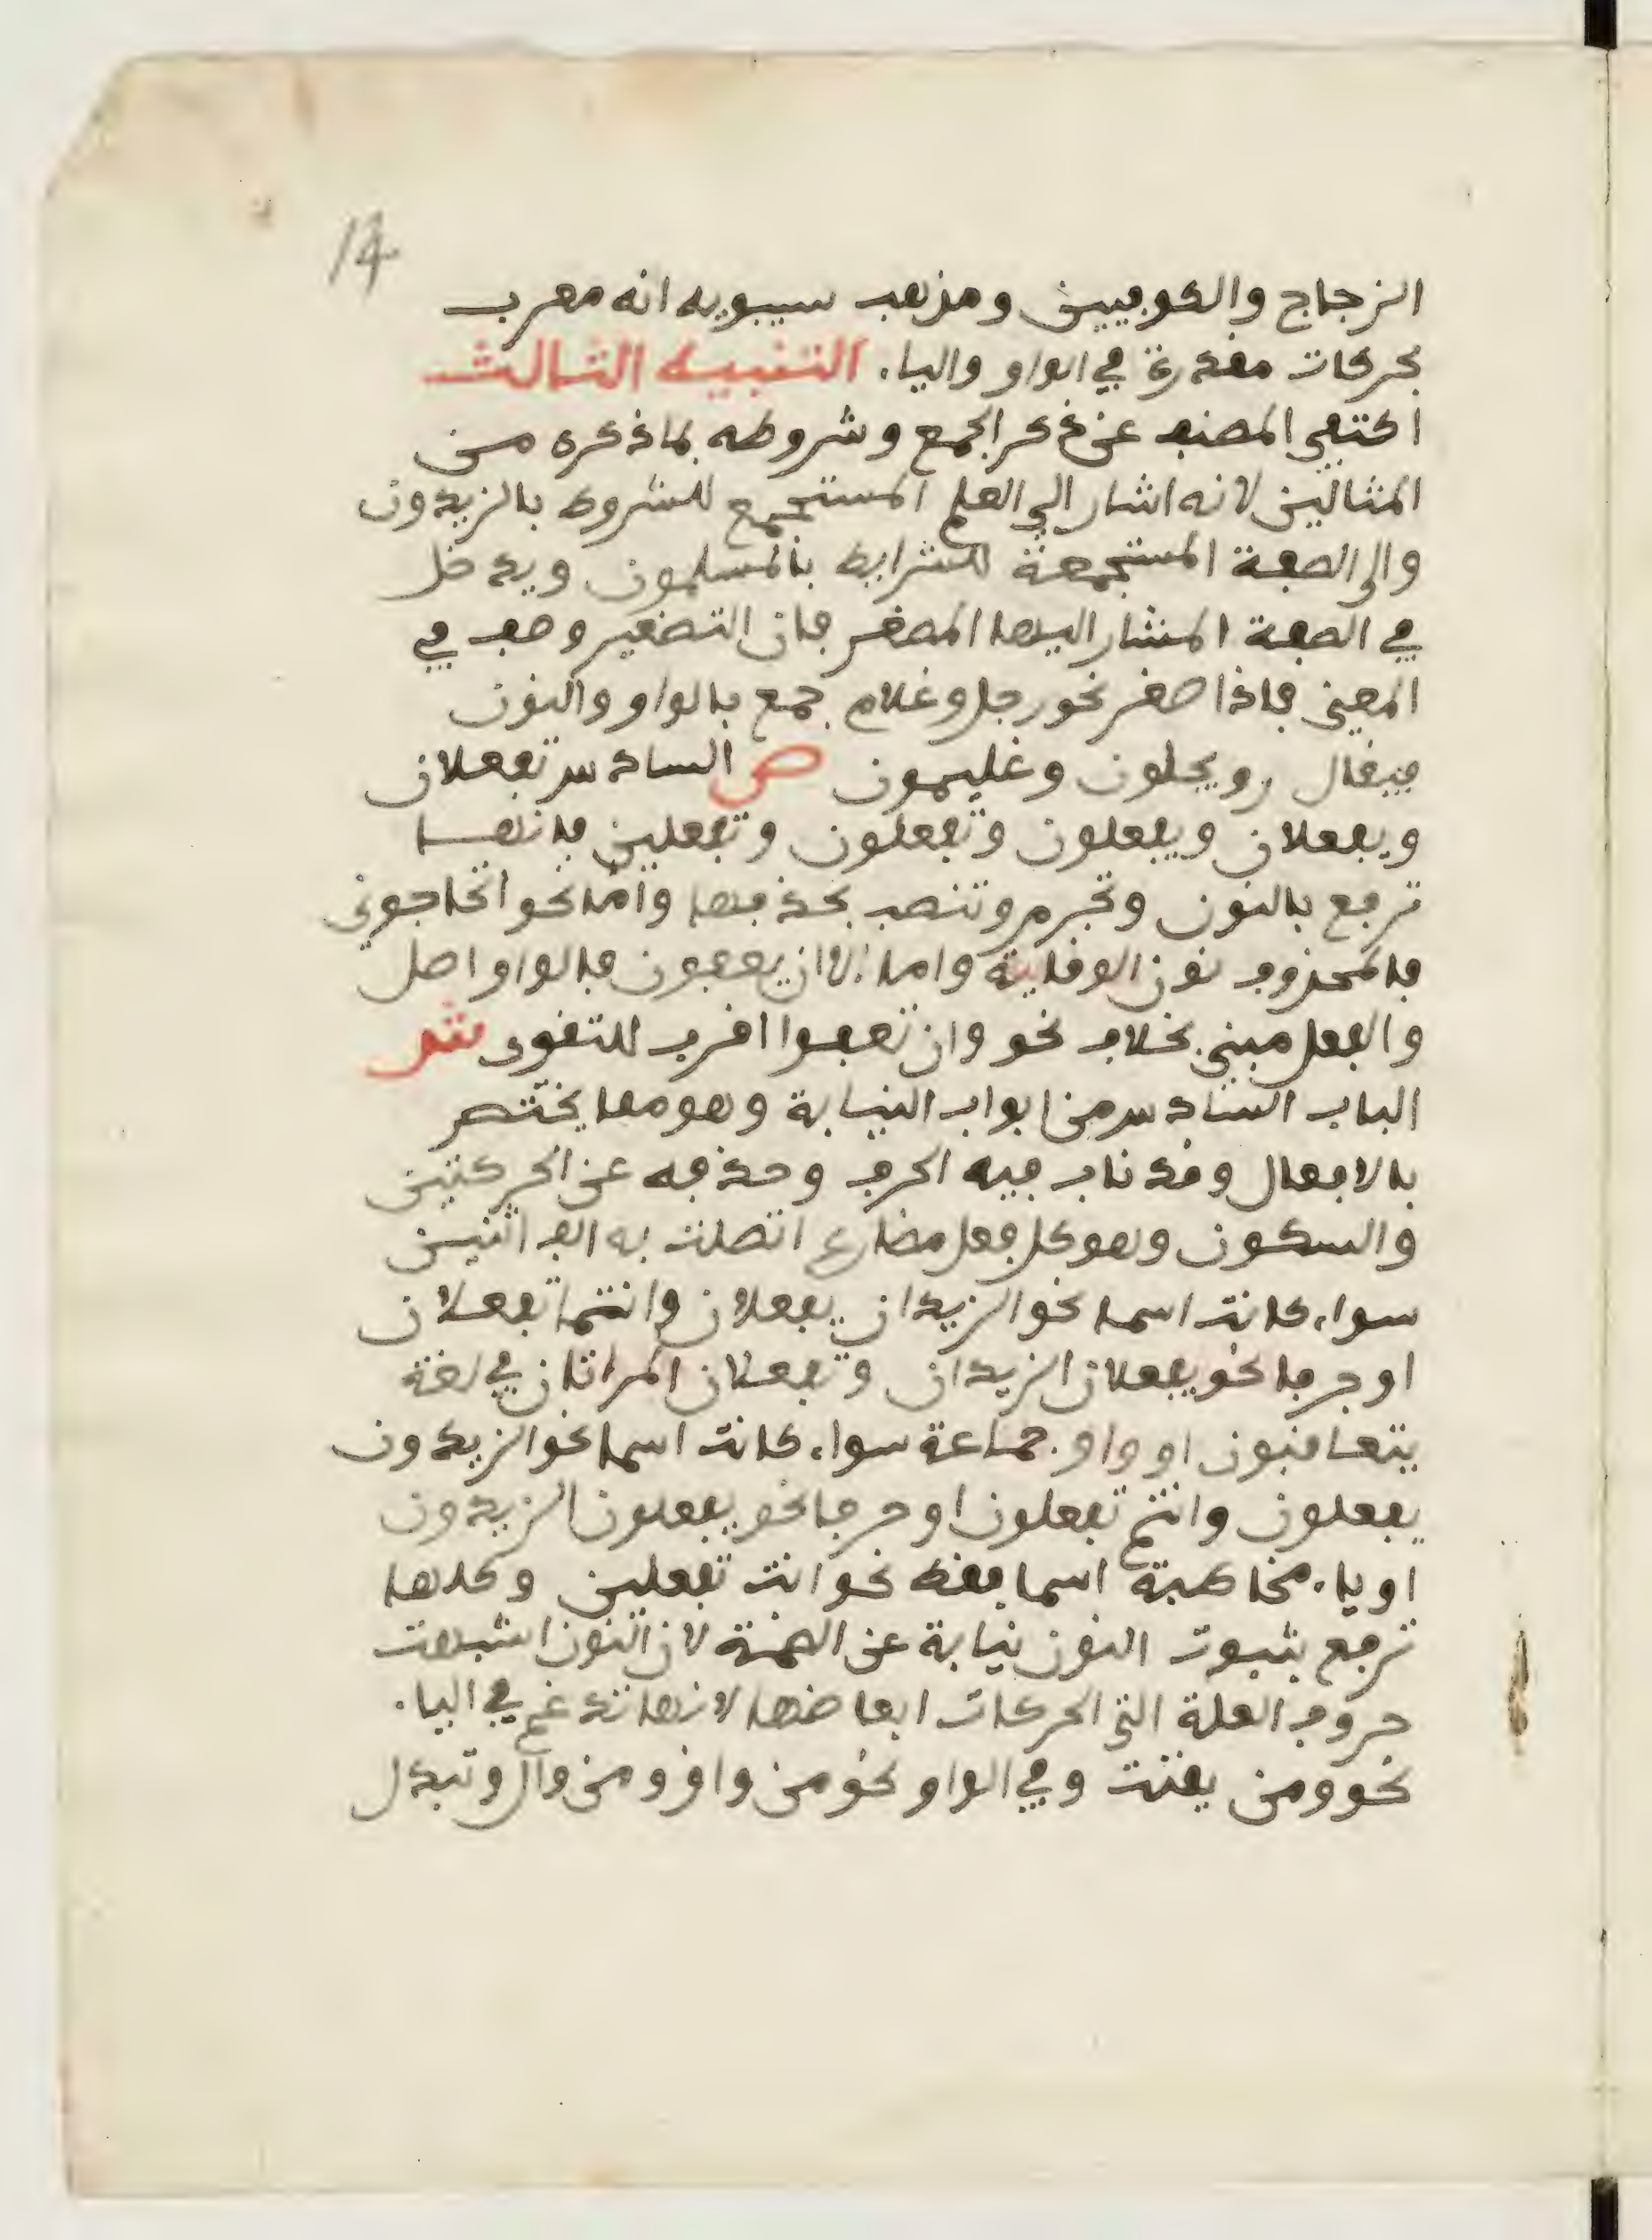 14
الزجاج والكوفيين ومذهب سيبويه انه معرب
بحركات مقدرة في الواو والياء. التنبيه الثالث
اكتفى المصنف عن ذكر الجمع وشروطه بما ذكره من
المثالين لانه اشار الى العلم المستجمع للشروط بالزيدون
والى الصفة المستجمعة للشرايط بالمسلمون ويدخل
في الصفة المشار اليها المصغر فان التصغير وصف في
المعنى فاذا صغر نحو رجل وغلام جمع بالواو والنون
فيقال رويجلون وغليمون ص السادس تفعلان
ويفعلان ويفعلون وتفعلون وتفعلين فانها
ترفع بالنون وتجزم وتنصب بحذفها واما نحو اتحاجوني
فالمحذوف نون الوقاية واما الا ان يعفون فالواو اصل
والفعل مبني بخلاف نحو وان تعفوا اقرب للتقوى ش
الباب السادس من ابواب النيابة وهو مما يختص
بالافعال وقد ناب فيه الحرف وحذفه عن الحركتين
والسكون وهو كل فعل مضارع اتصلت به الف اثنين
سواء كانت اسما نحو الزيدان يفعلان وانتما تفعلان
او حرفا نحو يفعلان الزيدان وتفعلان المراتان في لغة
يتعاقبون او واو جماعة سواء كانت اسما نحو الزيدون
يفعلون وانتم تفعلون او حرفا نحو يفعلون الزيدون
او ياء مخاطبة اسما فقط نحو انت تفعلين وكلها
ترفع بثبوت النون نيابة عن الضمة لان النون اشبهت
حروف العلة التي الحركات ابعاضها لانها تدغم في الياء.
نحو ومن يقنت وفي الواو نحو من واق ومن وال وتبدل